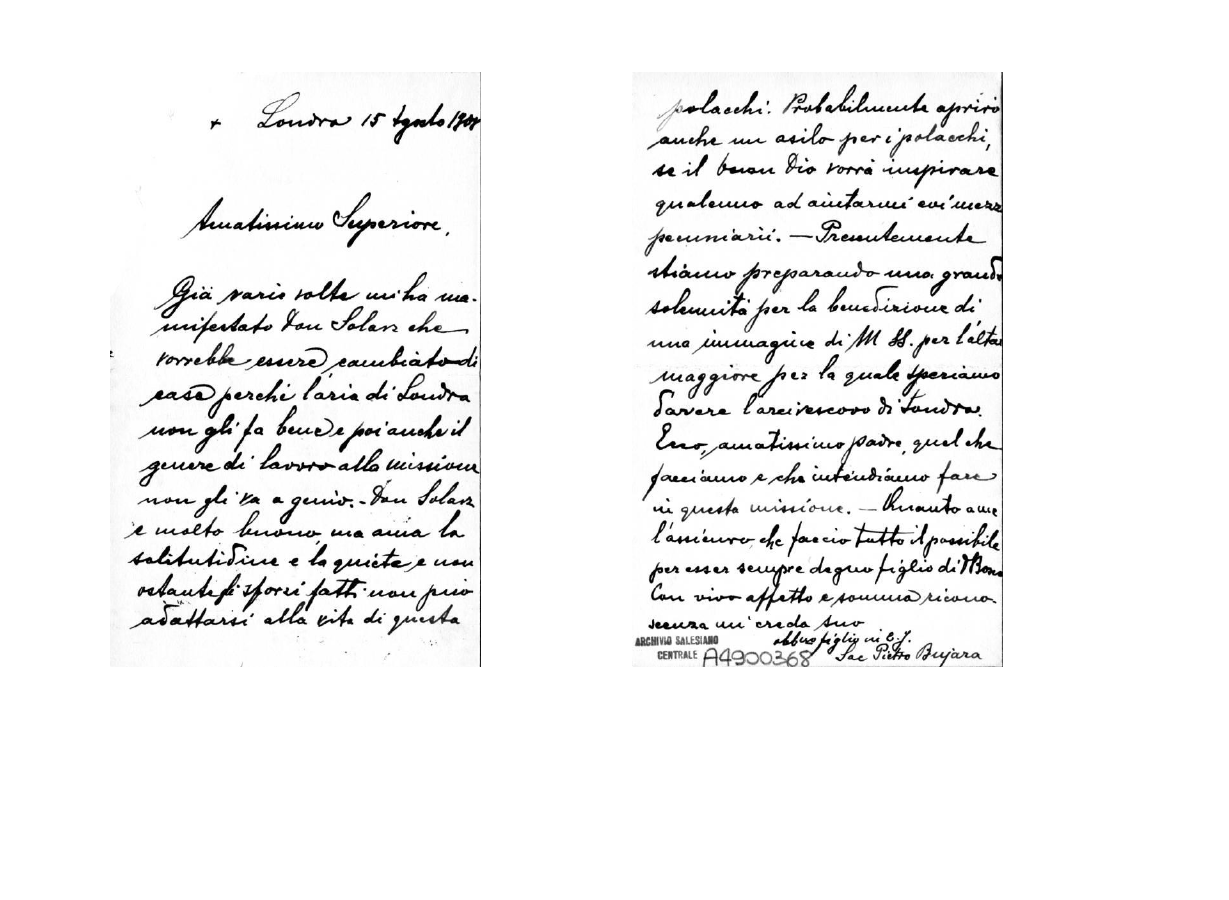 + Londra 15 Agosto
Amatissimo Superiore,
Già varie volte mi ha ma-
nifestato Don Solarz che
vorrebbe essere cambiato di
casa perchè l'aria di Londra
non gli fa bene e poi anche il
genere di lavoro alla missione
non gli va a genio. - Don Solarz
e molto buono, ma ama la
solitutidine e la quiete e non
ostante gli sforzi fatti non può
adattarsi alla vita di questa
polacchi. Probabilmente aprirò
anche un asilo per i polacchi,
se il buon Dio vorrà inspirare
qualcuno ad aiutarmi coi mezz
pecuniarii. — Presentemente
stiamo preparando una grande
solennità per la benedizione di
una immagine di M SS. per l'altar
maggiore per la quale speriamo
d'avere l'arcivescovo di Londra.
Ecco, amatissimo padre, quel che
facciamo e che intendiamo fare
in questa missione. — Quanto a me
l'assicuro, che faccio tutto il possibile
per esser sempre degno figlio di D Bosco
Con vivo affetto e somma ricono-
scenza mi creda suo
obbmo figlio in C. J.
Sac Pietro Bujara
ARCHIVIO SALESIANO
CENTRALE A4900368